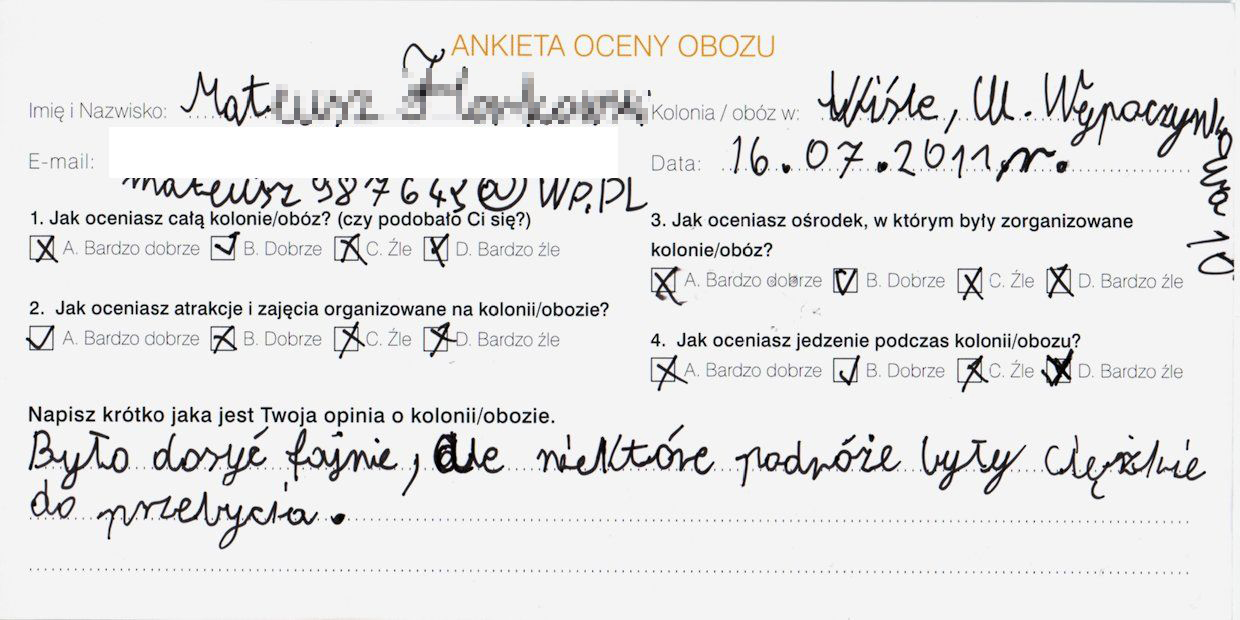 ANKIETA OCENY OBOZU
Imię i Nazwisko: Mateusz
Kolonia / obóz w: Wiśle, Ul. Wypoczynkowa 10
E-mail: mateusz987645@WP.PL
Data: 16.07.2011 r.
1. Jak oceniasz całą kolonie/obóz? (czy podobało Ci się?)
A. Bardzo dobrze B. Dobrze C. Źle D. Bardzo źle
2. Jak oceniasz atrakcje i zajęcia organizowane na kolonii/obozie?
A. Bardzo dobrze B. Dobrze C. Źle D. Bardzo źle
3. Jak oceniasz ośrodek, w którym były zorganizowane
kolonie/obóz?
A. Bardzo dobrze B. Dobrze C. Źle D. Bardzo źle
4. Jak oceniasz jedzenie podczas kolonii/obozu?
A. Bardzo dobrze B. Dobrze C. Źle D. Bardzo źle
Napisz krótko jaka jest Twoja opinia o kolonii/obozie.
Było dosyć fajnie, ale niektóre podróże były ciężkie
do przebycia.